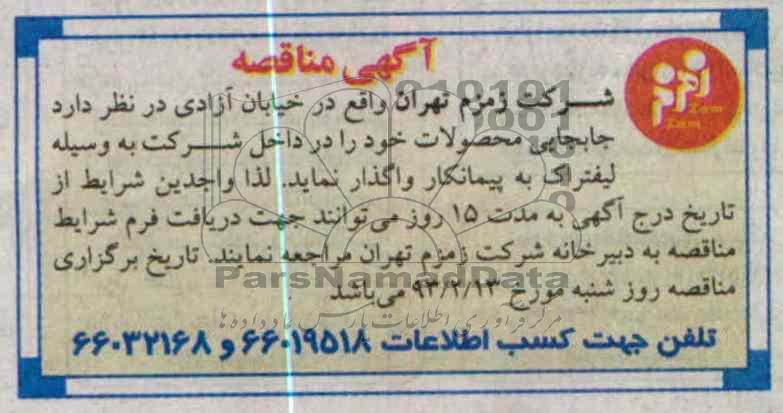 آگهی مناقصه
شرکت زمزم تهران واقع در خیابان آزادی در نظر دارد
جابجایی محصولات خود را در داخل شرکت به وسیله
لیفتراک به پیمانکار واگذار نماید. لذا واجدین شرایط از
تاریخ درج آگهی به مدت ۱۵ روز می‌توانند جهت دریافت فرم شرایط
مناقصه به دبیرخانه شرکت زمزم تهران مراجعه نمایند. تاریخ برگزاری
مناقصه روز شنبه مورخ ۹۳/۲/۱۳ می‌باشد
تلفن جهت کسب اطلاعات ۶۶۰۱۹۵۱۸ و ۶۶۰۳۲۱۶۸
Zam
Zam
ParsNamadData
مرکز فرآوری اطلاعات پارس نماد داده ها